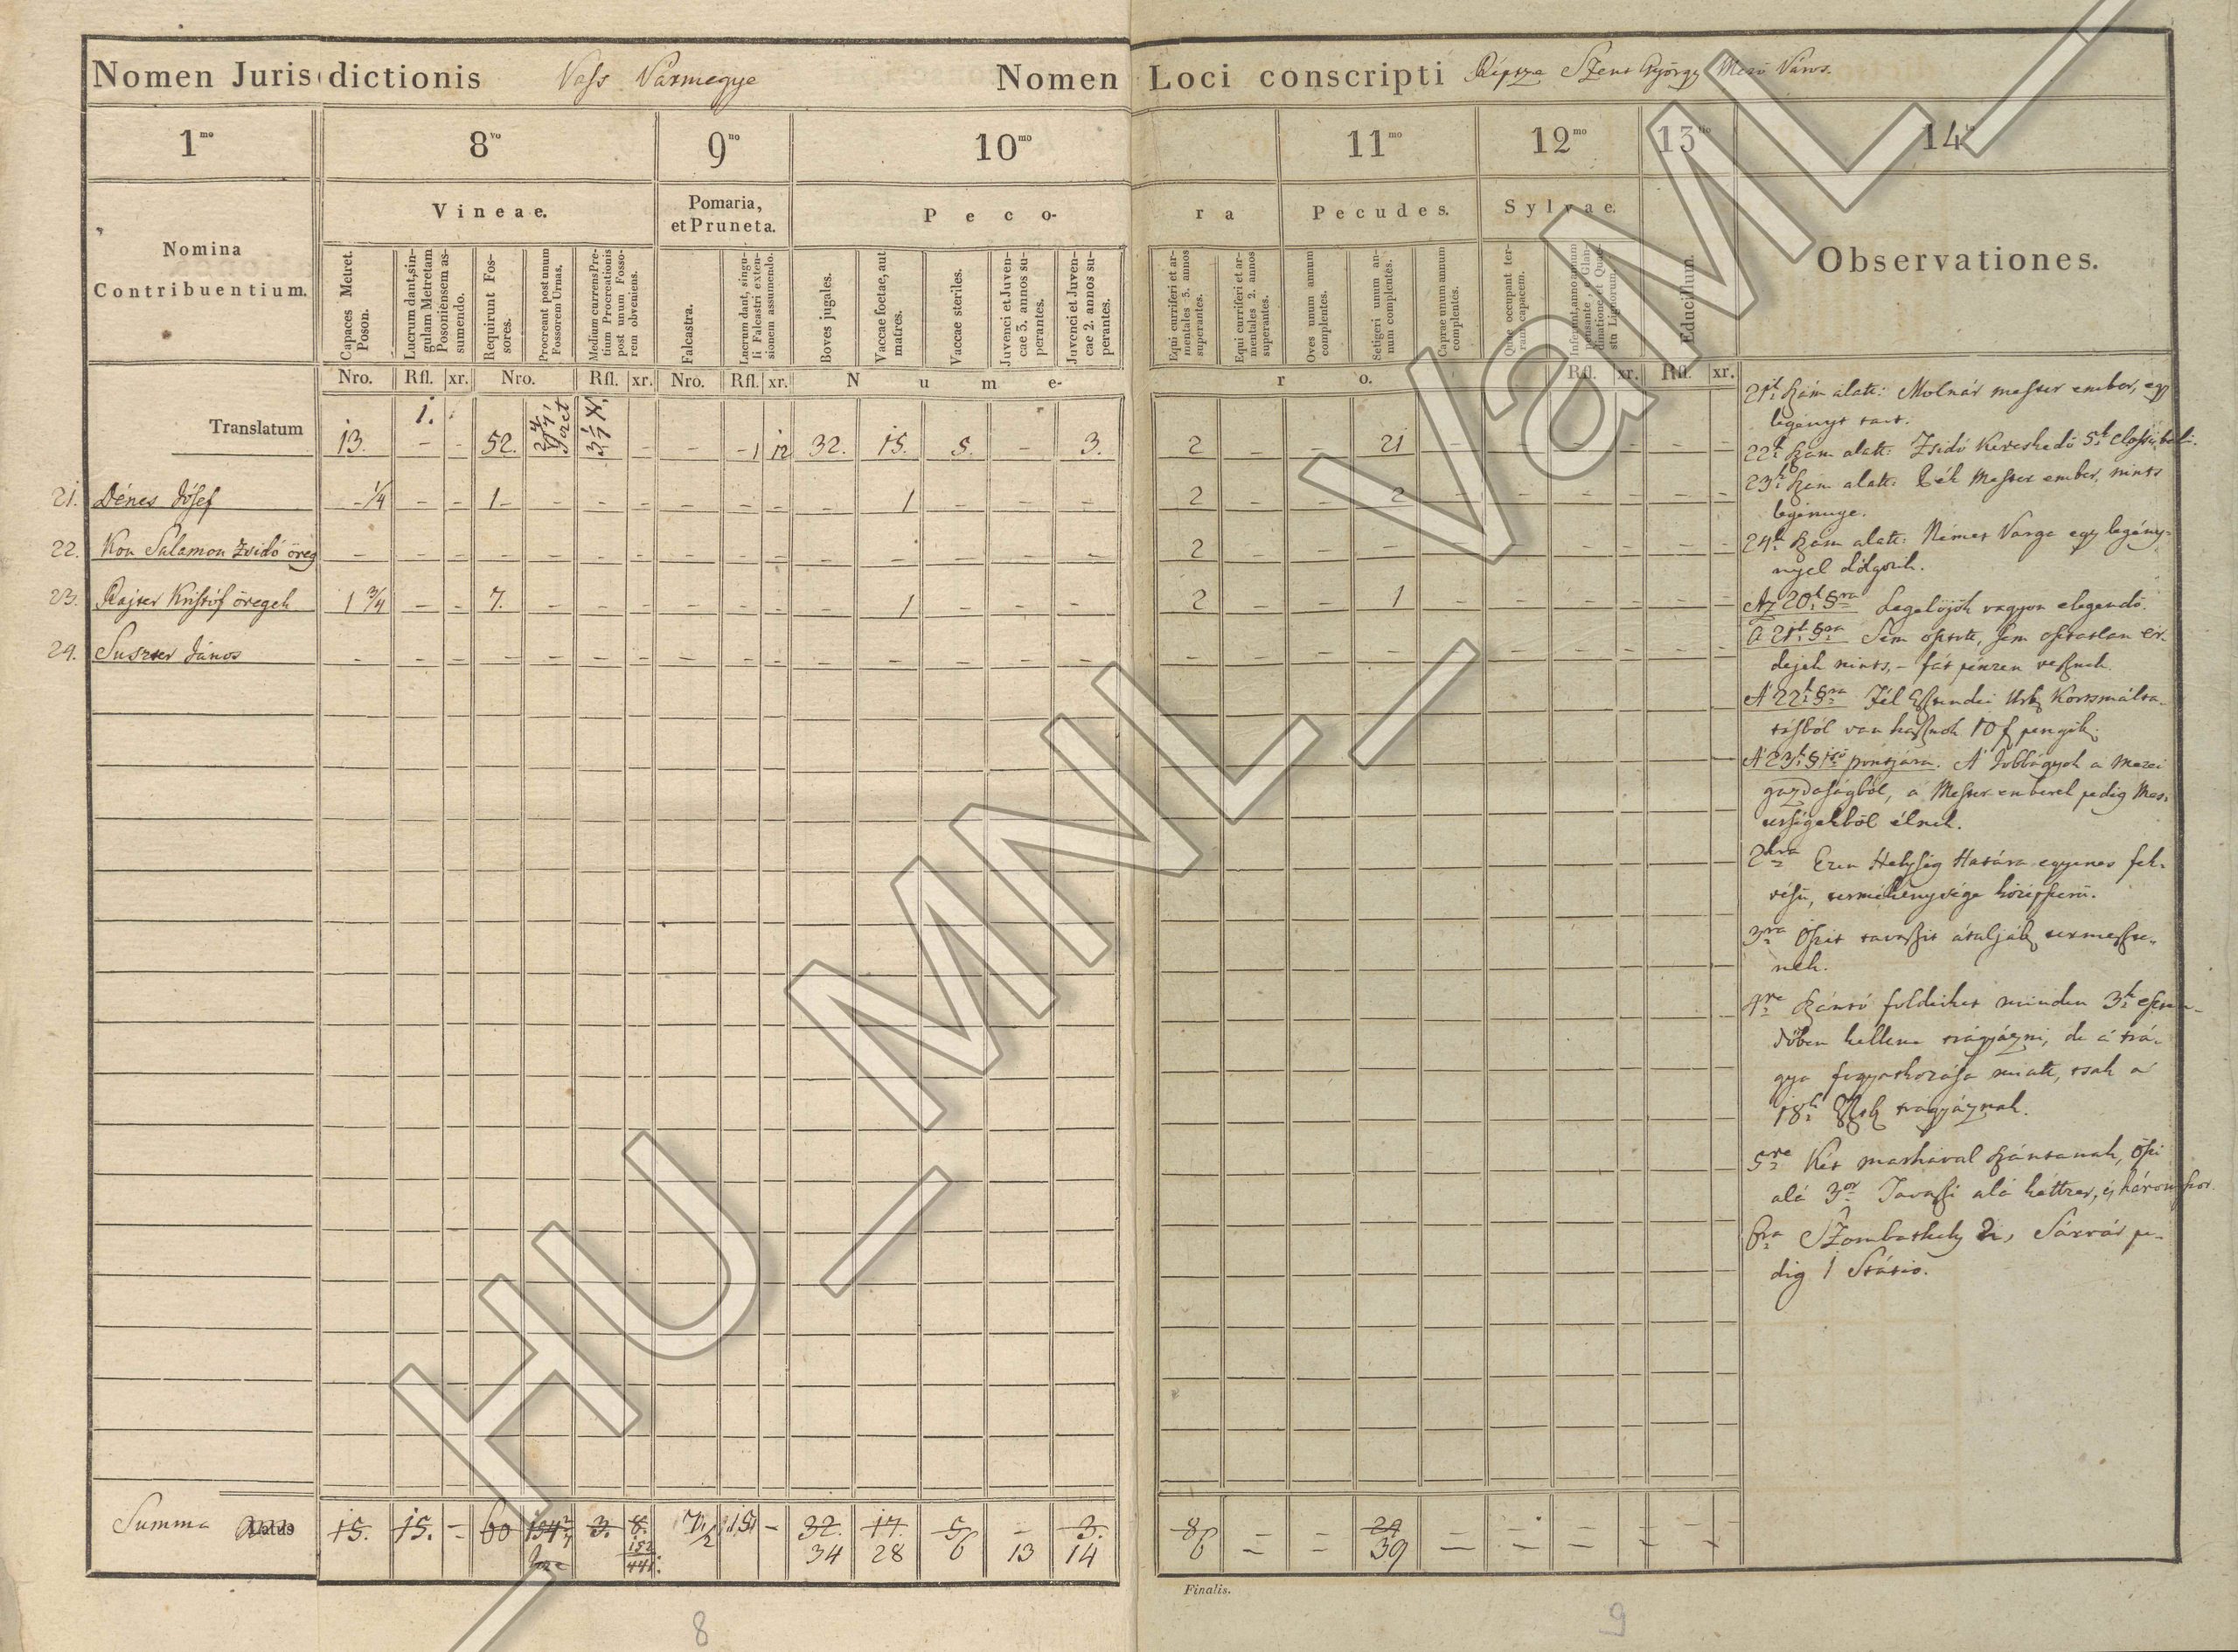 Nomen Jurisdictionis Vass Vármegye Nomen Loci conscripti Répcze Szent György Mező Város.
1mo 8vo 9no 10mo 11mo 12mo 13tio 14
Nomina Contribuentium.
Vineae.
Pomaria, et Pruneta.
Peco-
ra
Pecudes.
Sylvae.
Educillum.
Observationes.
Capaces Metret. Poson.
Lucrum dant, singulam Metretam Posoniensem assumendo.
Requirunt Fossores.
Procreant post unum Fossorem Urnas.
Medium currens Pretium Procreationis post unum Fossorem obveniens.
Falcastra.
Lucrum dant, singuli Falcastri extensionem assumendo.
Boves jugales.
Vaccae foetae, aut matres.
Vaccae steriles.
Juvenci et Juvencae 3. annos superantes.
Juvenci et Juvencae 2. annos superantes.
Equi curriferi et armentales 3. annos superantes.
Equi curriferi et armentales 2. annos superantes.
Oves unum annum complentes.
Setigeri unum annum complentes.
Caprae unum annum complentes.
Quae occupant terram capacem.
Nro. Rfl. xr. Nro. Rfl. xr. Nro. Rfl. xr. Nume-
ro. Rfl. xr. Rfl. xr.
Translatum 13. 1. - - 52. - - - 1 12 32. 15. 5. - 3. 2 - - 21 - - - - - -
21. Dénes Jósef - 1/4 - - 1 - - - - - - - - 1 - - - 2 - - 2 - - - - - -
22. Kon Salamon Zsidó öreg - - - - - - - - - - - - - - - - 2 - - - - - - - - -
23. Rajter Kristóf öregek 1 3/4 - - 7. - - - - - - - 1 - - - 2 - - 1 - - - - - -
24. Suszter János - - - - - - - - - - - - - - - - - - - - - - - - -
21k Szám alatt: Molnár mester ember, egy
legényt tart.
22k Szám alatt: Zsidó Kereskedő 5k
23k Szám alatt: Mester ember, nints
legénnye.
24k Szám alatt: Német Varga egy legény-
nyel dolgozik.
Az 20k §ra Legelőjök vagyon elegendő.
A 21k §ra Sem osztott, sem osztatlan er-
dejek nints, - fát pénzen vesznek.
A' 22k §ra Fél Esztendei Korcsmálta-
tásból van hasznok 10 f
A' 23k § 1ső pontjára. A' Jobbágyok a mezei
gazdaságból, a Mester emberek pedig Mes-
terségekből élnek.
2kra Ezen Helység Határa egyenes fek-
vésű, termékenysége középszerű.
3ra Őszit tavaszit termeszte-
nek.
4re Szántó földeiket minden 3k eszten-
dőben kellene trágyázni, de a' trá-
gya miatt, tsak a'
18k trágyáznak.
5re Két marhával szántanak, őszi
alá 3or Tavaszi alá kéttzer, és háromszor.
6ra Szombathely 2, Sárvár pe-
dig 1 Státio.
Summa Latus 15. 15. - 60 3. 8. 7 1/2 15 - 32. 17. 5 - 3. 8 - - 24 - - - - - -
34 28 6 13 14 6 - - 39
152
441.
Finalis.
8
9
HU_MNL_VaML_